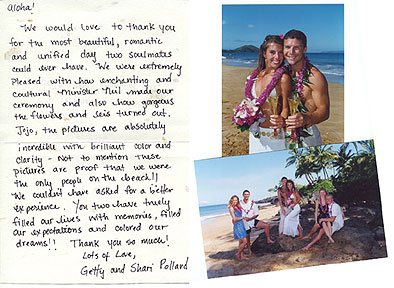 Aloha!
We would love to thank you
for the most beautiful, romantic
and unified day two soulmates
could ever have. We were extremely
pleased with how enchanting and
coultural Minister Neil made our
ceremony and also how gorgeous
the flowers and leis turned out.
Jojo, the pictures are absolutely
incredible with brilliant color and
clarity - Not to mention these
pictures are proof that we were
the only people on the beach!!
We couldn't have asked for a better
experience. You two have truly
filled our lives with memories, filled
our expectations and colored our
dreams!! Thank you so much!
Lots of Love,
Getty and Shari Pollard